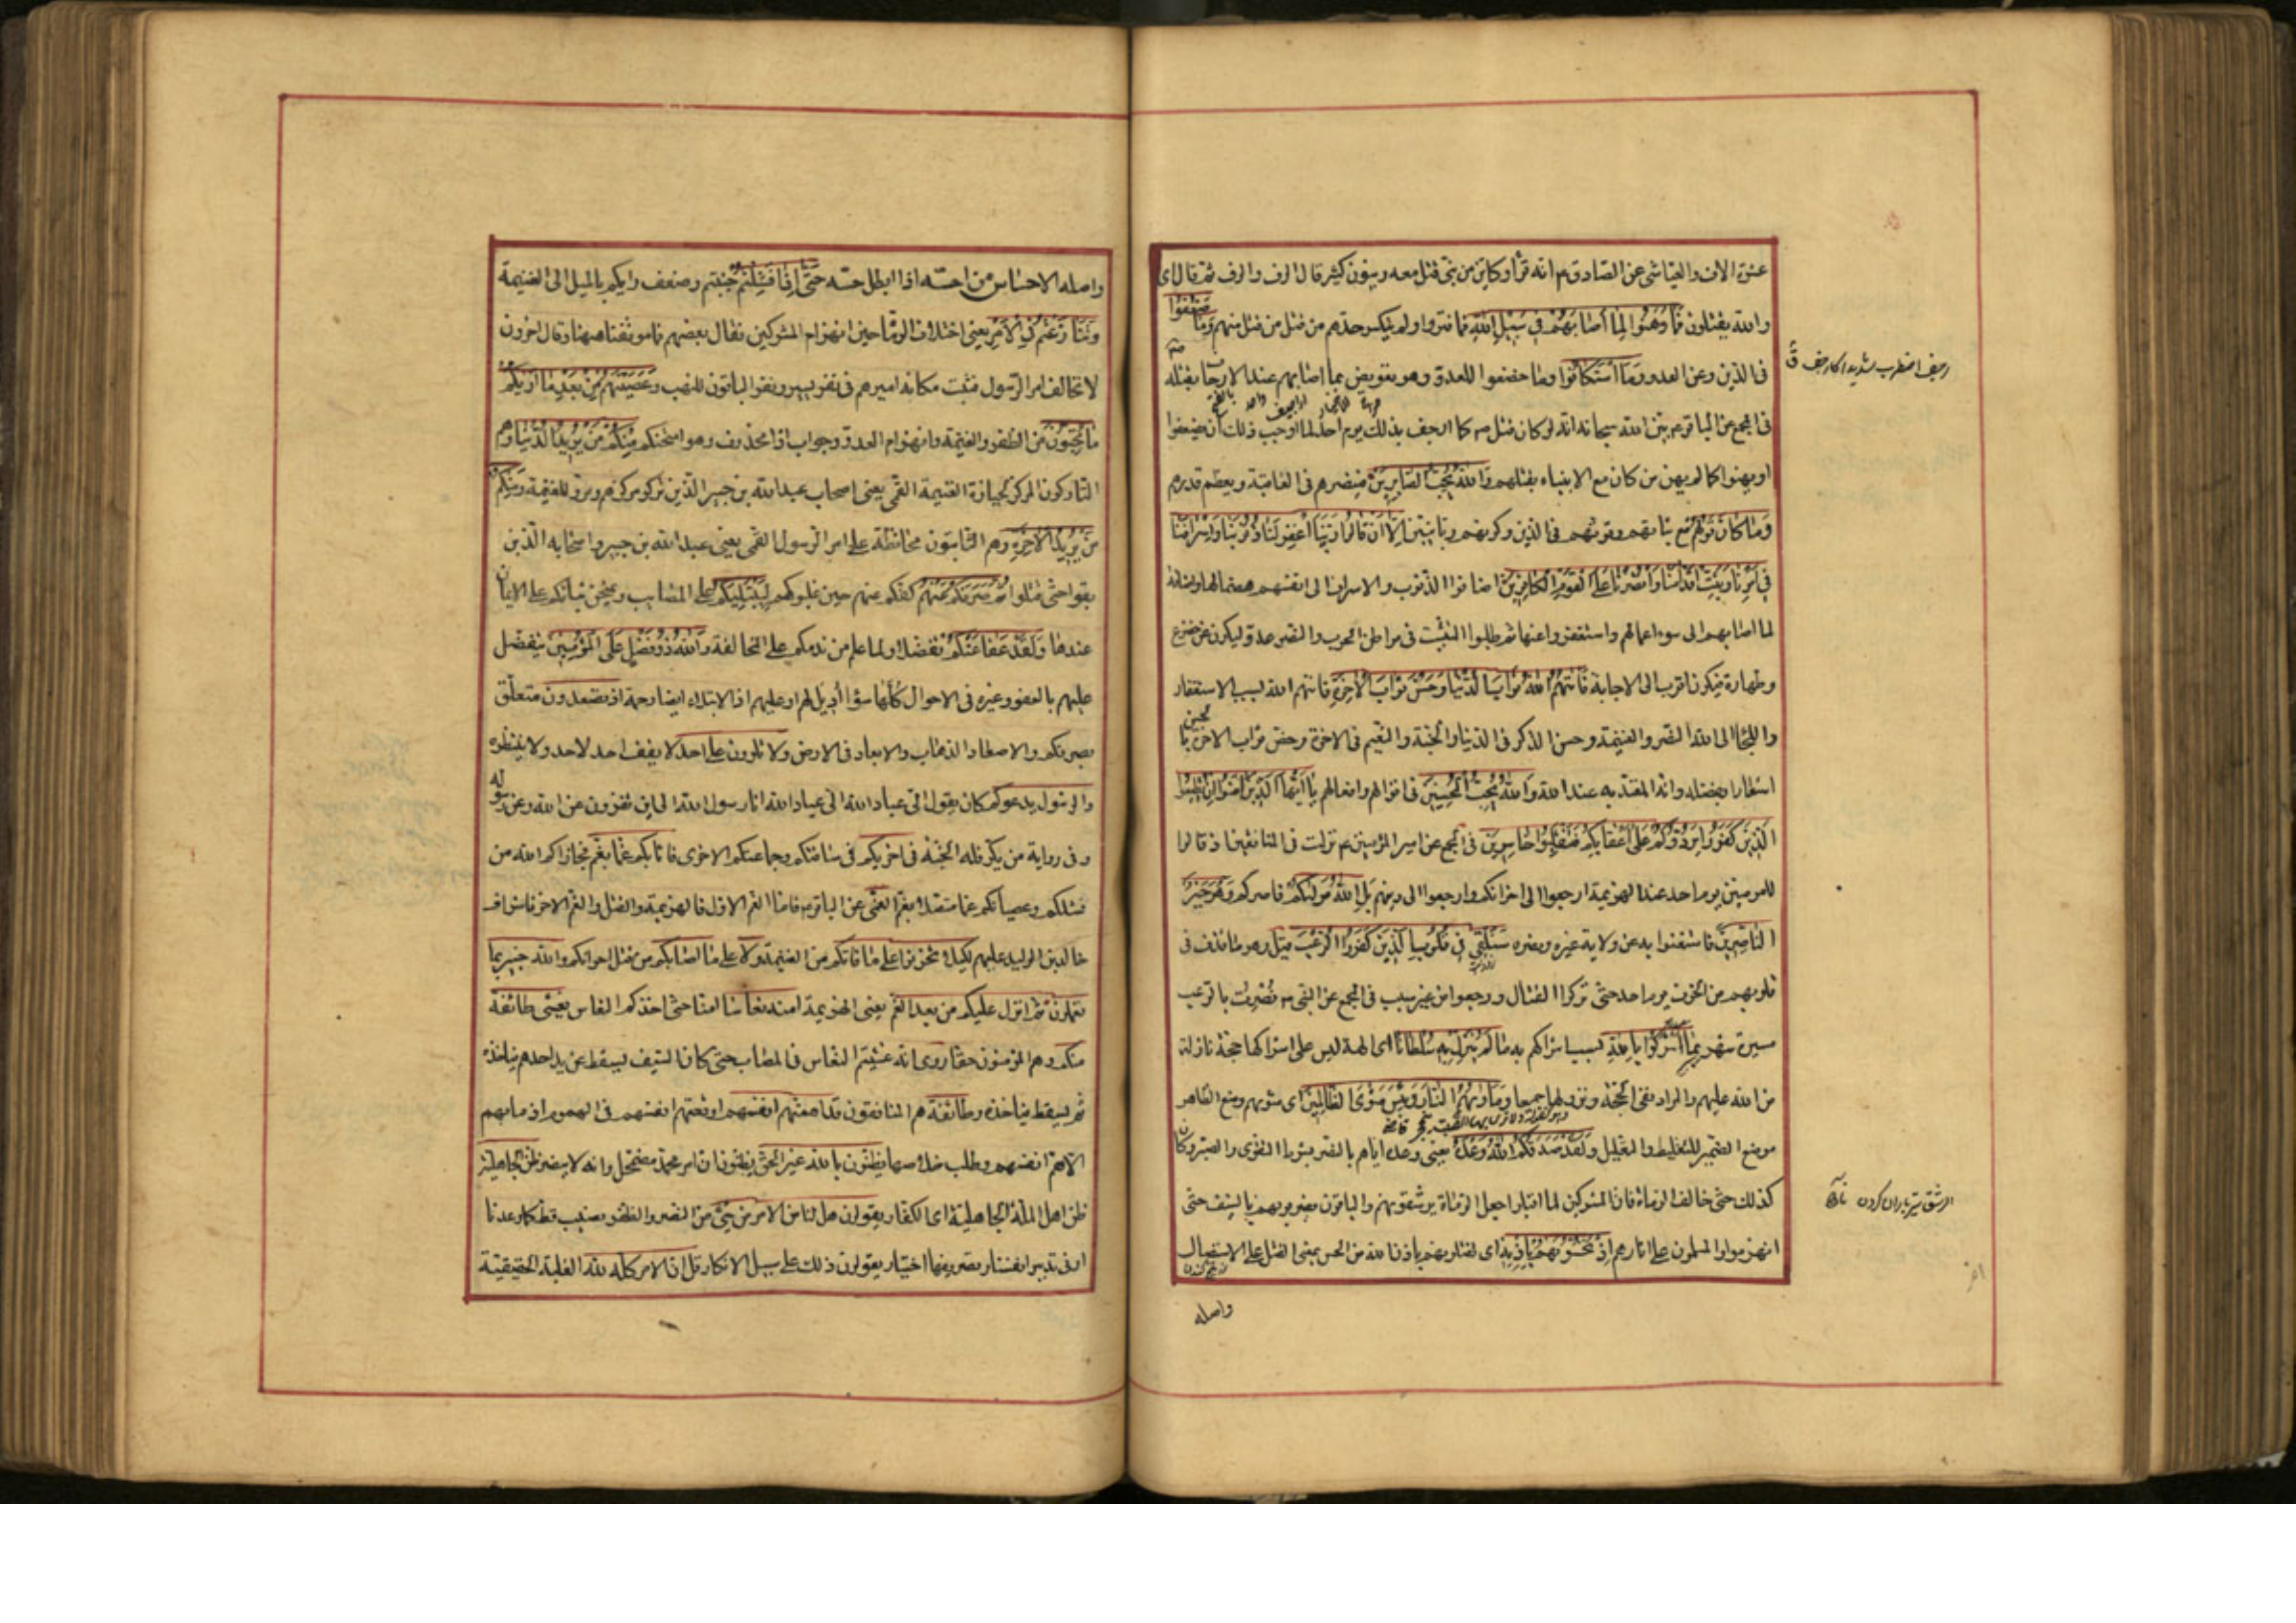 عشرة الاف والعياشي عن الصادق ع انه قرأ وكاين من نبي قتل معه ربيون كثير قال الوف والوف ثم قال اي
والله يقتلون فَمَا وَهَنُوا لِمَا أَصَابَهُمْ فِي سَبِيلِ اللَّهِ فما فتروا ولم ينكسر حدهم من قتل من قتل منهم وَمَا ضَعُفُوا
في الدين وعن العدو وَمَا اسْتَكَانُوا وما خضعوا للعدو وهو تعريض بما اصابهم عند الارجاف بقتله
في المجمع عن الباقر ع بين الله سبحانه انه لو كان قتل ص كما ارجف بذلك يوم احد لما اوجب ذلك ان يضعفوا
او يهنوا كما لم يهن من كان مع الانبياء بقتلهم وَاللَّهُ يُحِبُّ الصَّابِرِينَ فينصرهم في العاقبة ويعظم قدرهم
وَمَا كَانَ قَوْلَهُمْ مع ثباتهم وقوتهم في الدين وكونهم ربانيين إِلَّا أَنْ قَالُوا رَبَّنَا اغْفِرْ لَنَا ذُنُوبَنَا وَإِسْرَافَنَا
فِي أَمْرِنَا وَثَبِّتْ أَقْدَامَنَا وَانْصُرْنَا عَلَى الْقَوْمِ الْكَافِرِينَ اضافوا الذنوب والاسراف الى انفسهم هضما لها واضافة
لما اصابهم الى سوء اعمالهم واستغفروا عنها ثم طلبوا التثبت في مواطن الحرب والنصر على العدو ليكون عن خضوع
وطهارة فيكون اقرب الى الاجابة فَآتَاهُمُ اللَّهُ ثَوَابَ الدُّنْيَا وَحُسْنَ ثَوَابِ الْآخِرَةِ فاتاهم الله بسبب الاستغفار
واللجأ الى الله النصر والغنيمة وحسن الذكر في الدنيا والجنة والنعيم في الاخرة وخص ثواب الاخرة بالحسن
اشعارا بفضله وانه المعتد به عند الله وَاللَّهُ يُحِبُّ الْمُحْسِنِينَ في اقوالهم وافعالهم يَا أَيُّهَا الَّذِينَ آمَنُوا إِنْ تُطِيعُوا
الَّذِينَ كَفَرُوا يَرُدُّوكُمْ عَلَى أَعْقَابِكُمْ فَتَنْقَلِبُوا خَاسِرِينَ في المجمع عن امير المؤمنين ع نزلت في المنافقين اذ قالوا
للمومنين يوم احد عند الهزيمة ارجعوا الى اخوانكم وارجعوا الى دينهم بَلِ اللَّهُ مَوْلَاكُمْ ناصركم وَهُوَ خَيْرُ
النَّاصِرِينَ فاستغنوا به عن ولاية غيره ونصره سَنُلْقِي فِي قُلُوبِ الَّذِينَ كَفَرُوا الرُّعْبَ قيل وهو ما قذف في
قلوبهم من الخوف يوم احد حتى تركوا القتال ورجعوا من غير سبب في المجمع عن النبي ص نصرت بالرعب
مسيرة شهر بِمَا أَشْرَكُوا بِاللَّهِ بسبب اشراكهم به مَا لَمْ يُنَزِّلْ بِهِ سُلْطَانًا اي الهة ليس على اشراكها حجة نازلة
من الله عليهم والمراد نفي الحجة ونزولها جميعا وَمَأْوَاهُمُ النَّارُ وَبِئْسَ مَثْوَى الظَّالِمِينَ اي مثويهم وضع الظاهر
موضع الضمير للتغليظ والتعليل وَلَقَدْ صَدَقَكُمُ اللَّهُ وَعْدَهُ يعني وعده اياهم بالنصر بشرط التقوى والصبر وكان
كذلك حتى خالف الرماة فان المشركين لما اقبلوا جعل الرماة يرشقونهم والباقون يضربونهم بالسيف حتى
انهزموا والمسلمون على اثارهم إِذْ تَحُسُّونَهُمْ بِإِذْنِهِ اي تقتلونهم باذن الله من الحس بمعنى القتل على الاستيصال
واصله
رجف اضطرب شديدا كارجف ق
الرشق تير باران كردن
واصله الاحساس من احسه اذا ابطل حسه حَتَّى إِذَا فَشِلْتُمْ جبنتم وضعف رايكم بالميل الى الغنيمة
وَتَنَازَعْتُمْ فِي الْأَمْرِ يعني اختلاف الرماة حين انهزام المشركين فقال بعضهم فما موقفنا ههنا وقال اخرون
لا نخالف امر الرسول فثبت مكانه اميرهم في نفر يسير ونفر الباقون للنهب وَعَصَيْتُمْ مِنْ بَعْدِ مَا أَرَاكُمْ
مَا تُحِبُّونَ من الظفر والغنيمة وانهزام العدو وجواب اذا محذوف وهو امتحنكم مِنْكُمْ مَنْ يُرِيدُ الدُّنْيَا وهم
التاركون المركز لحيازة الغنيمة القمي يعني اصحاب عبد الله بن جبير الذين تركوا مركزهم ومروا للغنيمة وَمِنْكُمْ
مَنْ يُرِيدُ الْآخِرَةَ وهم الثابتون محافظة على امر الرسول القمي يعني عبد الله بن جبير واصحابه الذين
بقوا حتى قتلوا ثُمَّ صَرَفَكُمْ عَنْهُمْ كفكم عنهم حين غلبوكم لِيَبْتَلِيَكُمْ على المصايب ويمتحن ثباتكم على الايمان
عندها وَلَقَدْ عَفَا عَنْكُمْ تفضلا ولما علم من ندمكم على المخالفة وَاللَّهُ ذُو فَضْلٍ عَلَى الْمُؤْمِنِينَ يتفضل
عليهم بالعفو وغيره في الاحوال كلها سواء اديل لهم او عليهم اذ الابتلاء ايضا رحمة اذ تصعدون متعلق
بصرفكم والاصعاد الذهاب والابعاد في الارض ولا تلوون على احد لا يقف احد لاحد ولا ينتظره
والرسول يدعوكم كان يقول الي عباد الله الي عباد الله انا رسول الله الى اين تفرون عن الله وعن رسوله
وفي رواية من يكر فله الجنة في اخريكم في ساقتكم وجماعتكم الاخرى فاثابكم غما بغم فجازاكم الله من
فشلكم وعصيانكم غما متصلا بغم القمي عن الباقر ع فاما الغم الاول فالهزيمة والقتل والغم الاخر فاشراف
خالد بن الوليد عليهم لكيلا تحزنوا على ما فاتكم من الغنيمة ولا على ما اصابكم من قتل اخوانكم والله خبير بما
تعملون ثم انزل عليكم من بعد الغم يعني الهزيمة امنة نعاسا امنا حتى اخذكم النعاس يغشى طائفة
منكم وهم المؤمنون حقا روي انه غشيهم النعاس في المصاف حتى كان السيف يسقط من يد احدهم فياخذه
ثم يسقط فياخذه وطائفة هم المنافقون قد اهمتهم انفسهم اوقعتهم انفسهم في الهموم او ما بهم
الا هم انفسهم وطلب خلاصها يظنون بالله غير الحق يظنون ان امر محمد مضمحل وانه لا ينصر ظن الجاهلية
ظن اهل الملة الجاهلية اي الكفار يقولون هل لنا من الامر من شيء من النصر والظفر نصيب قط كما وعدنا
او في تدبير انفسنا وتصريفها اختيار يقولون ذلك على سبيل الانكار قل ان الامر كله لله الغلبة الحقيقية